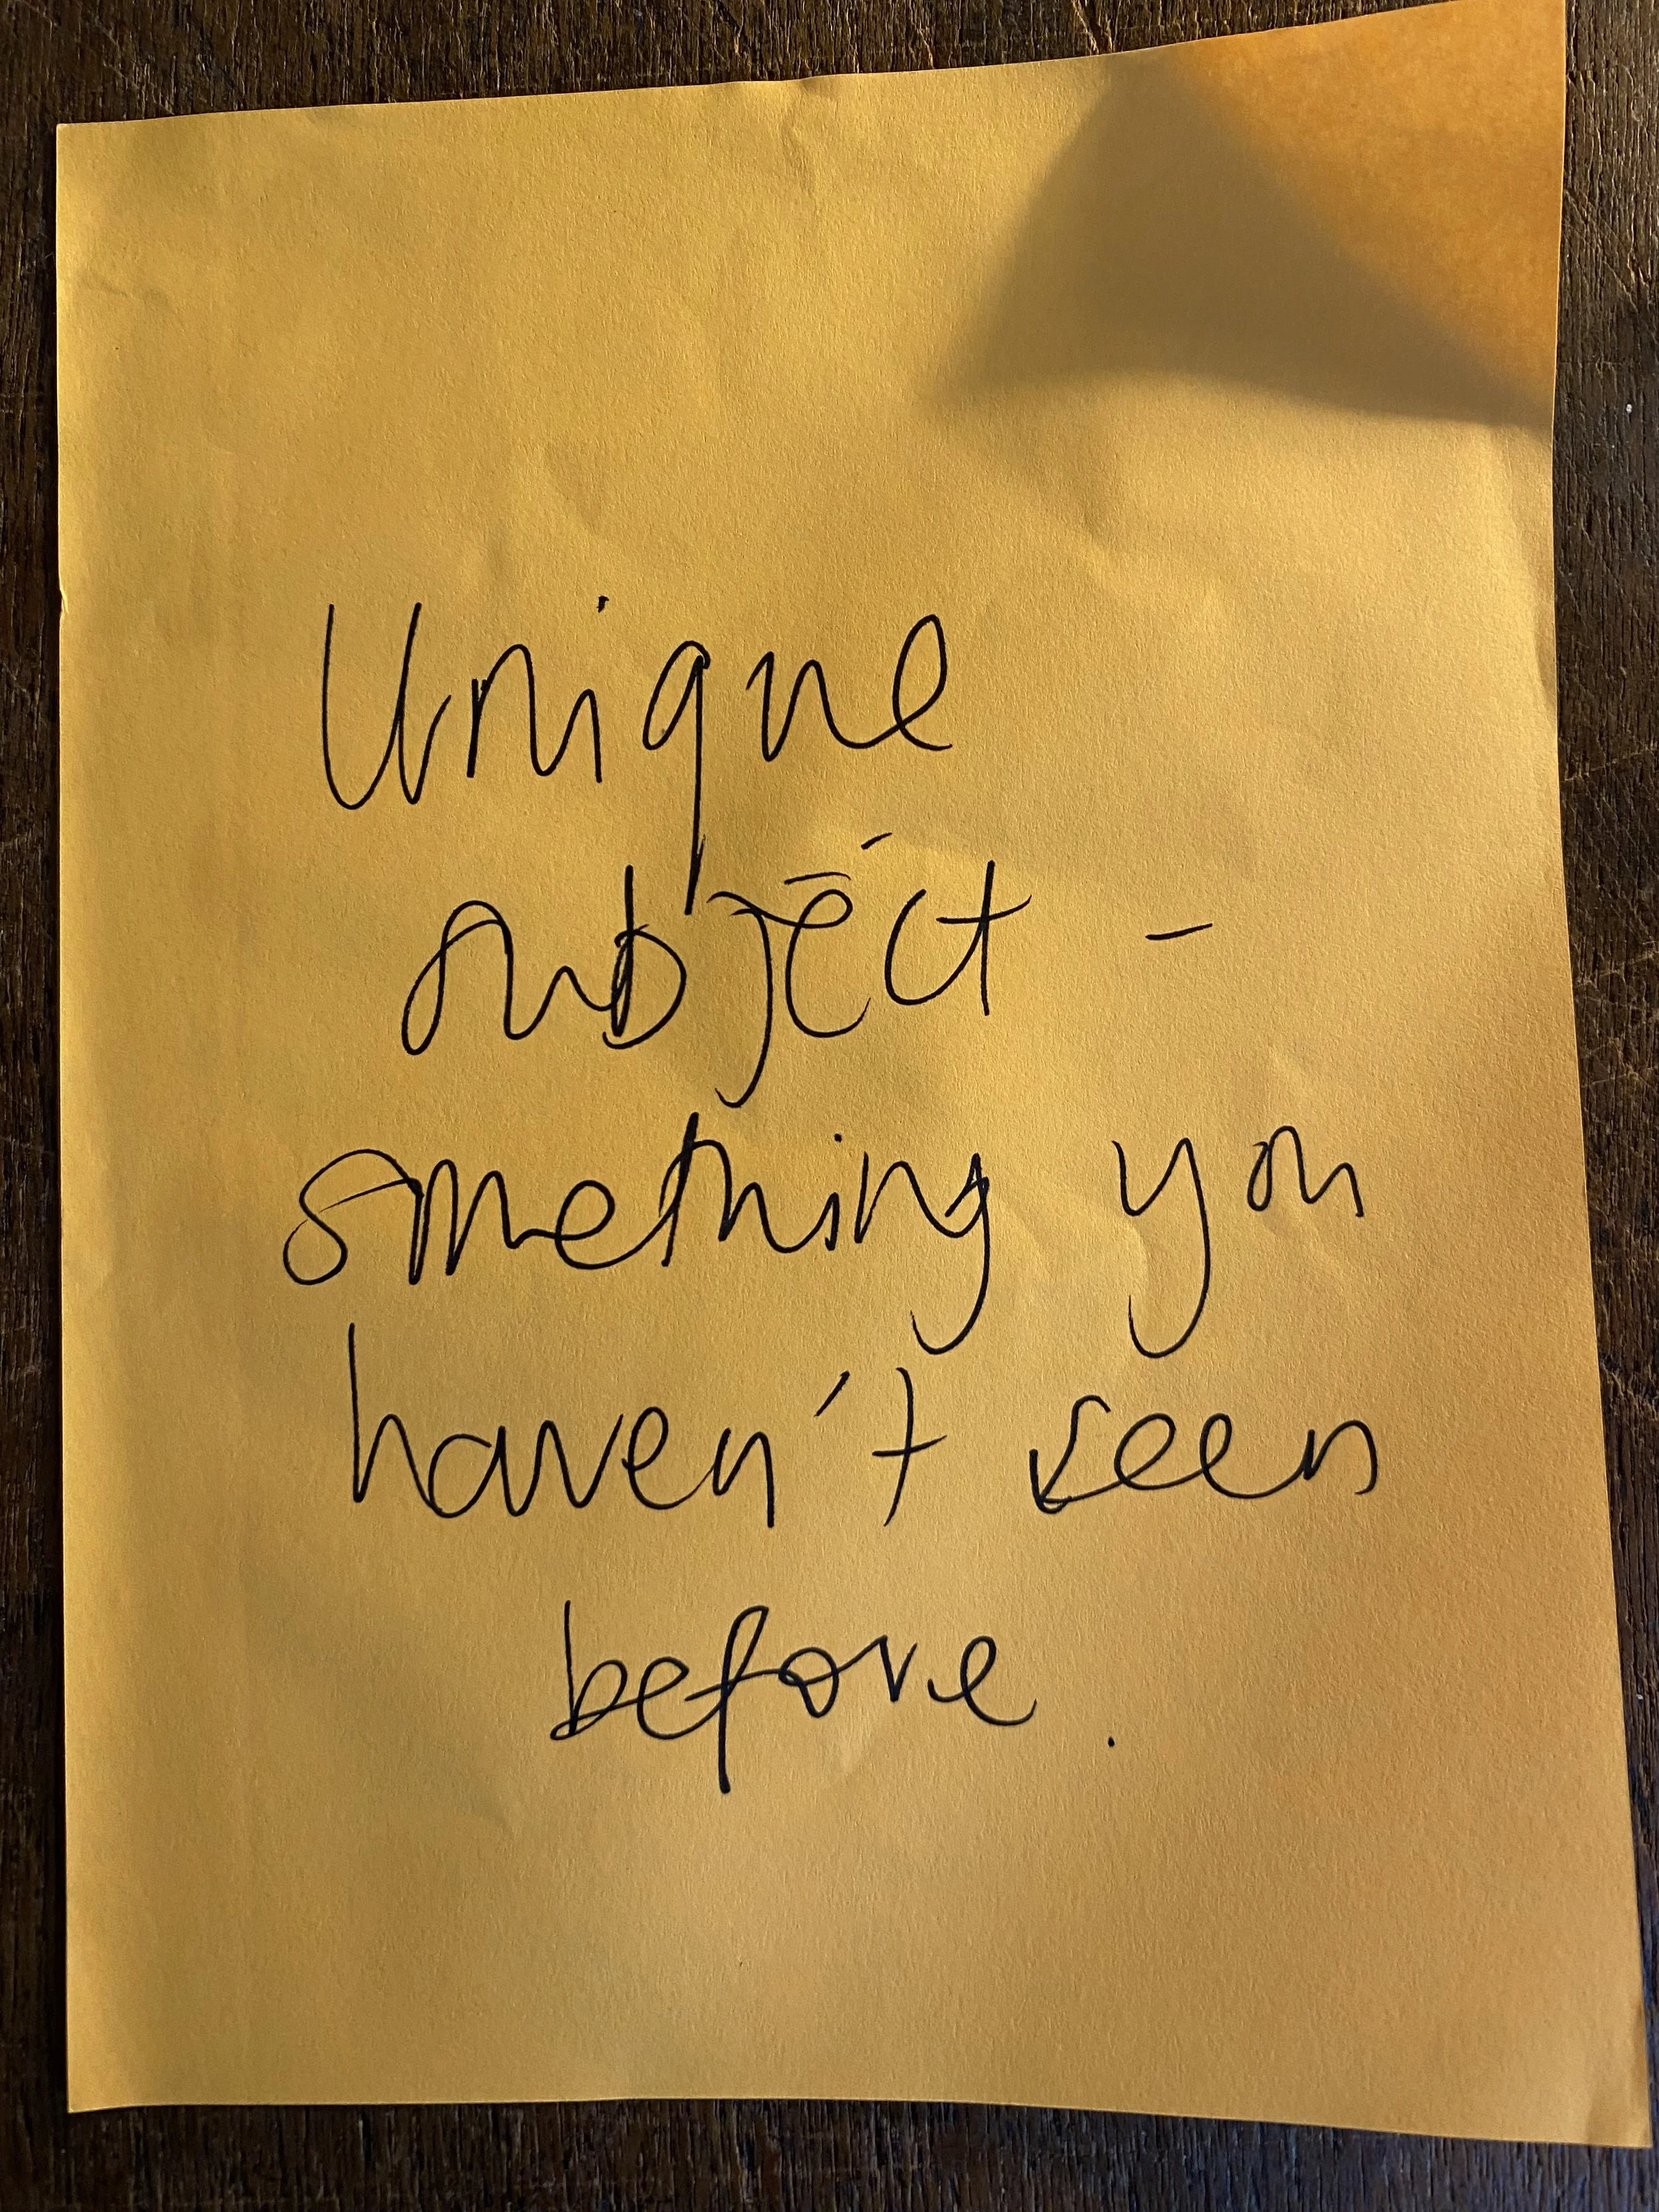 Unique
subject -
something you
haven't seen
before.